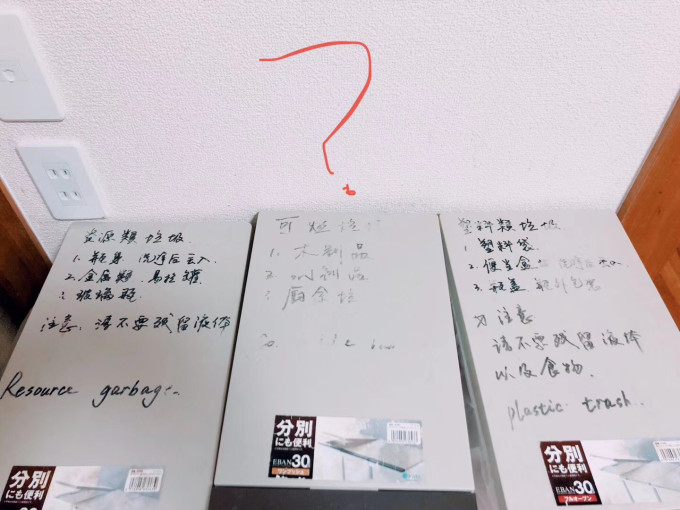 ?
资源類垃圾.
1. 瓶身 洗净后丟入
2. 金属類. 易拉罐
3. 玻璃瓶
注意. 请不要残留液体
Resource garbage.
分別
にも便利
EBAN 30
可
1. 木制品
2. 制品
3 厨余垃
分別
にも便利
EBAN30
塑料類垃圾.
1. 塑料袋
2. 便当盒
3. 瓶盖
注意
请不要残留液体
以及食物.
plastic trash.
分別
にも便利
EBAN 30
フルオープン